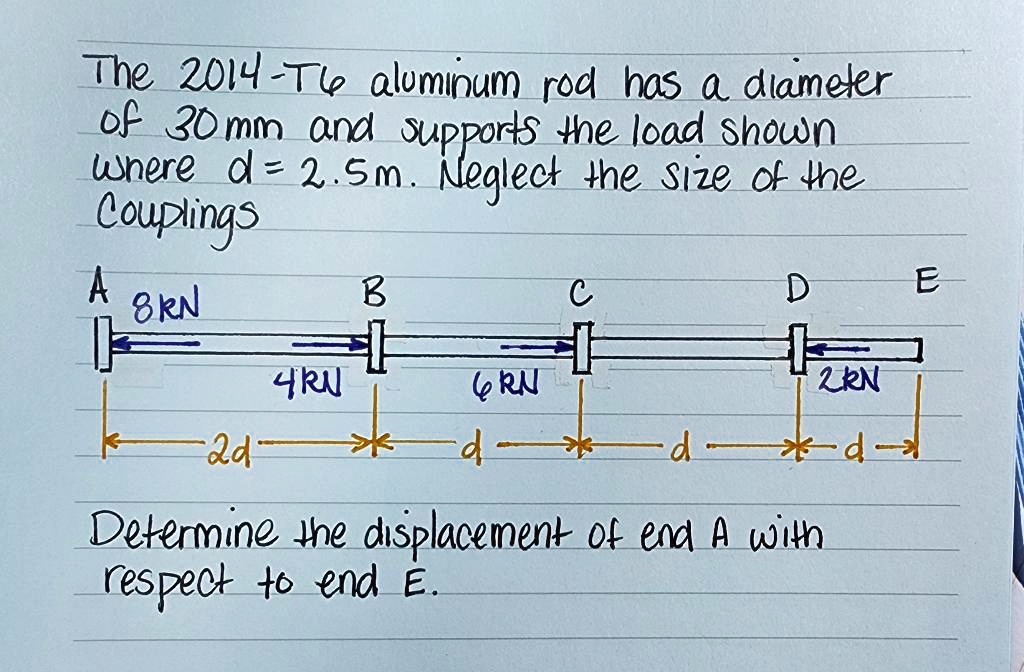 The 2014-T6 aluminum rod has a diameter
of 30mm and supports the load shown
where d = 2.5m. Neglect the size of the
Couplings
A B C D E
8kN
4kN 6kN 2kN
2d d d d
Determine the displacement of end A with
respect to end E.